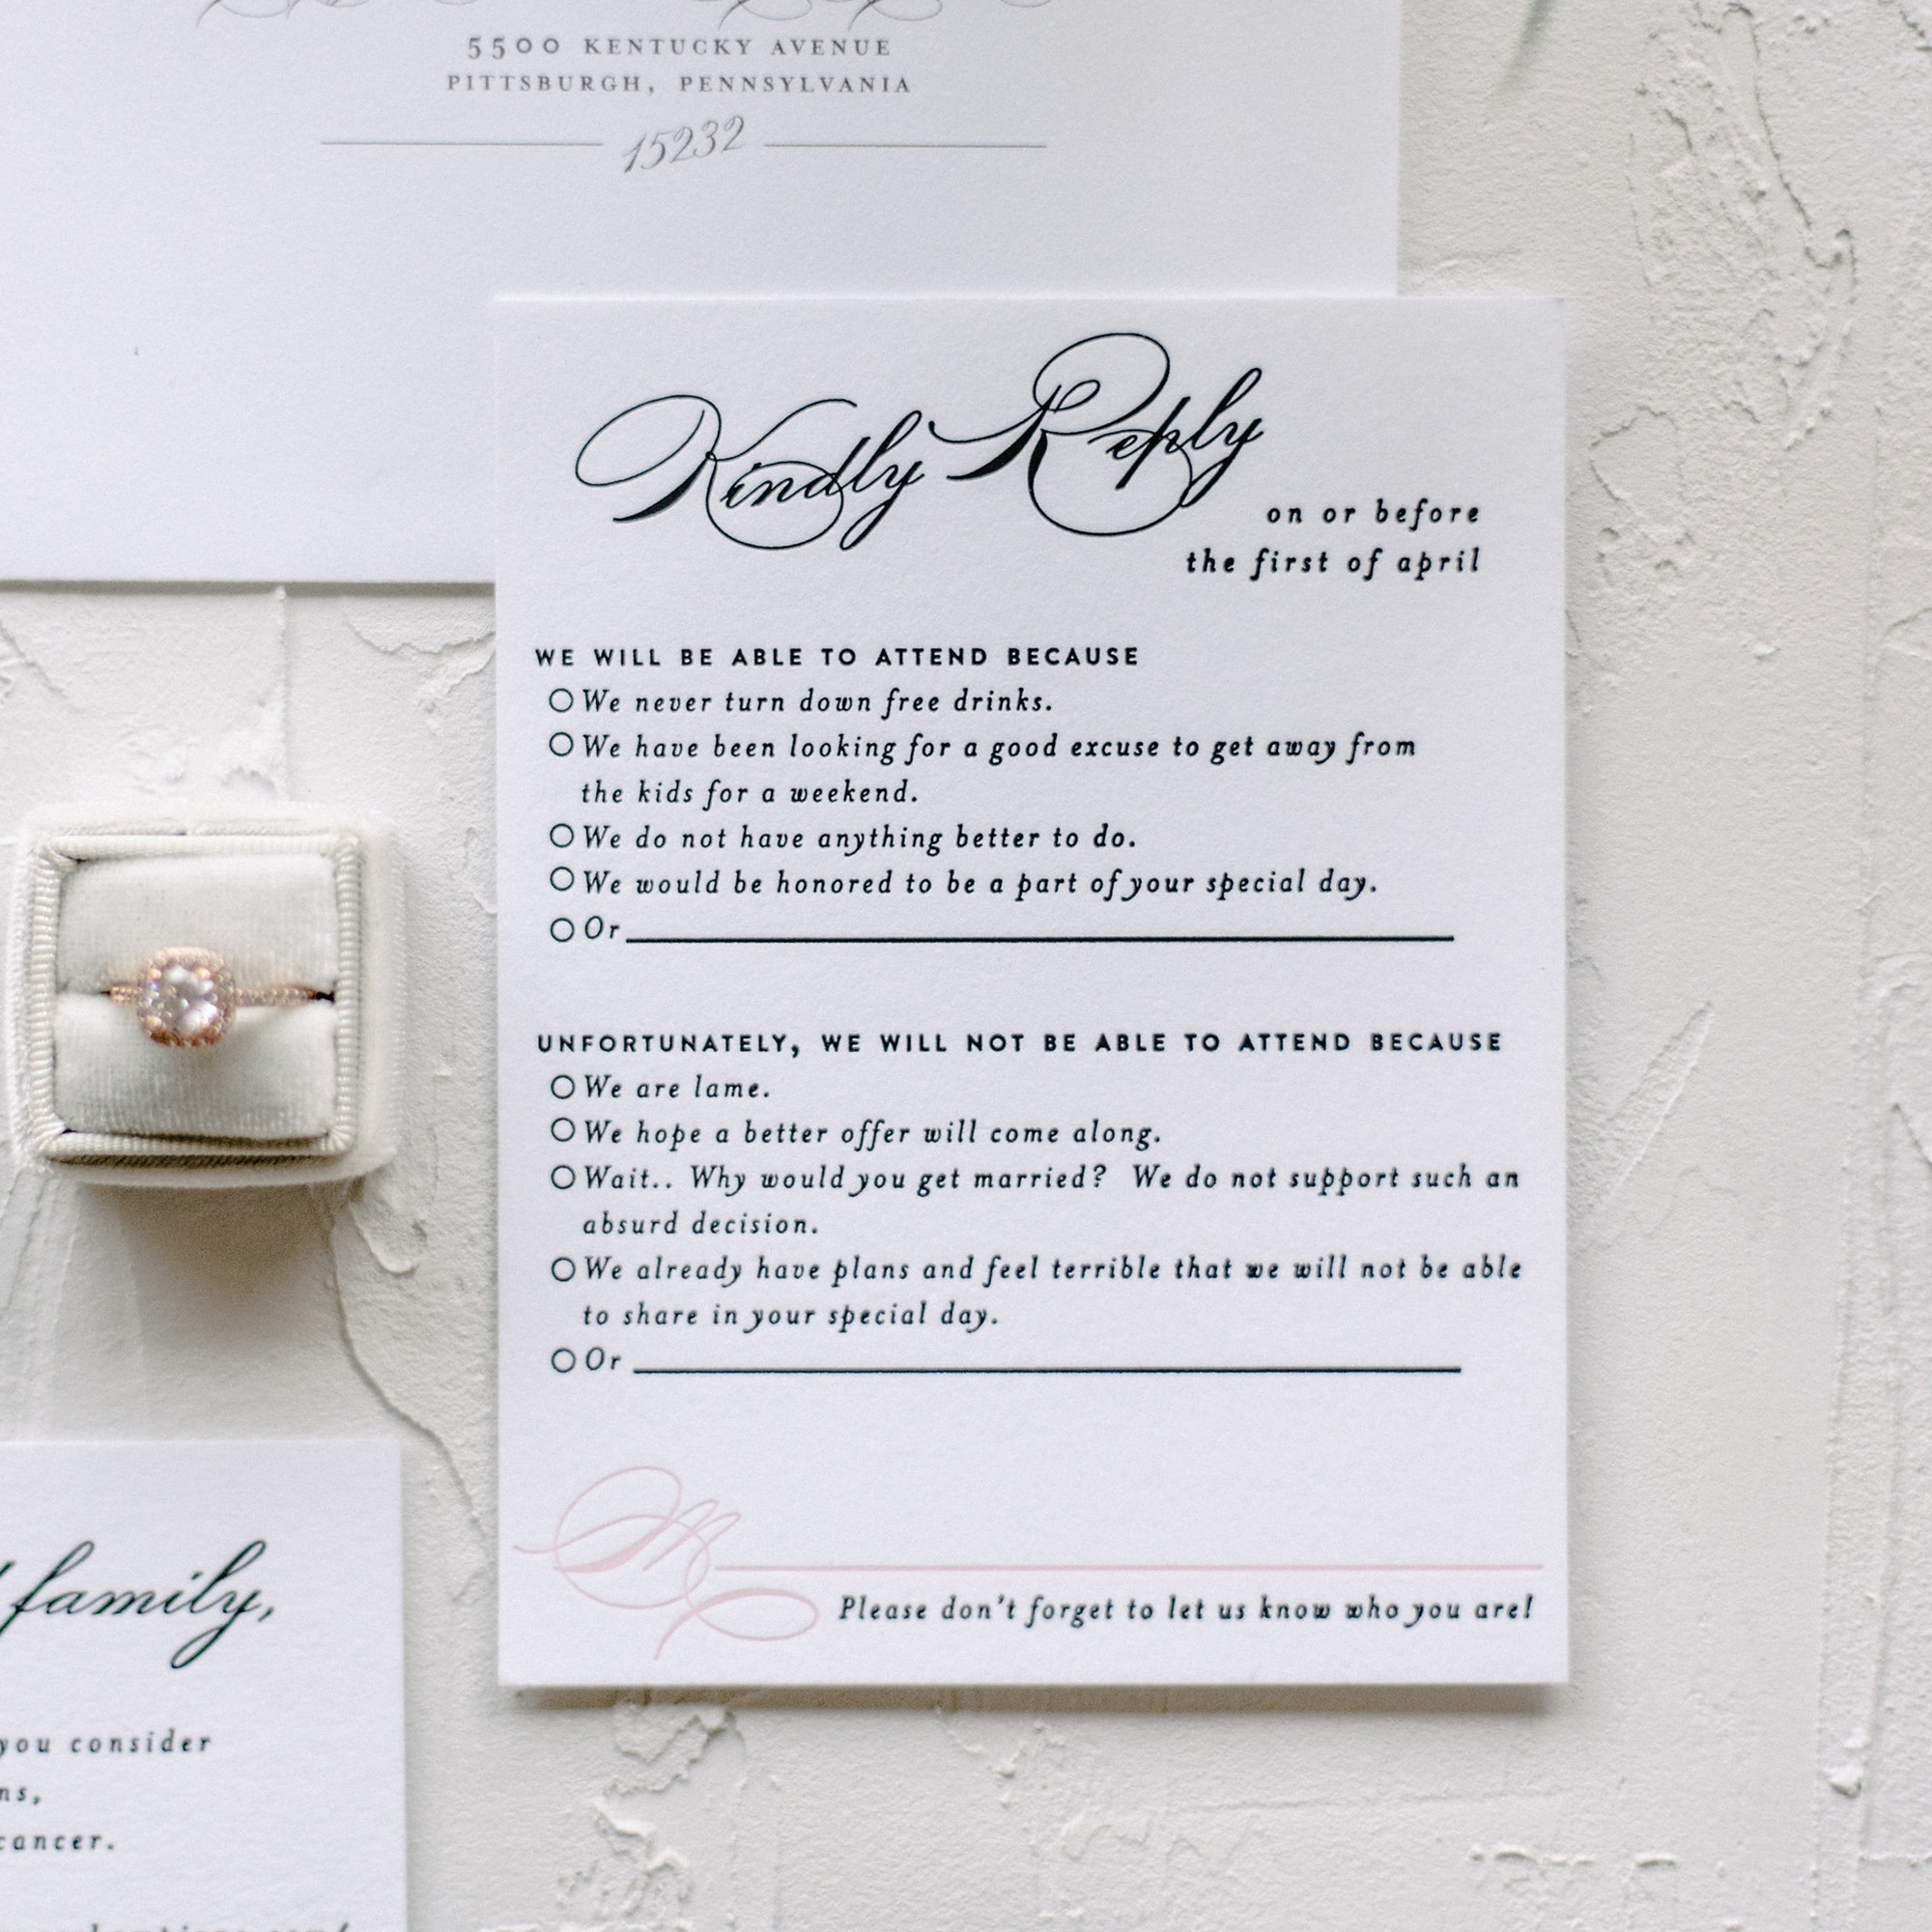 5500 KENTUCKY AVENUE
PITTSBURGH, PENNSYLVANIA
15232
Kindly Reply
on or before
the first of april
WE WILL BE ABLE TO ATTEND BECAUSE
We never turn down free drinks.
We have been looking for a good excuse to get away from
the kids for a weekend.
We do not have anything better to do.
We would be honored to be a part of your special day.
Or
UNFORTUNATELY, WE WILL NOT BE ABLE TO ATTEND BECAUSE
We are lame.
We hope a better offer will come along.
Wait.. Why would you get married? We do not support such an
absurd decision.
We already have plans and feel terrible that we will not be able
to share in your special day.
Or
M
Please don't forget to let us know who you are!
family,
you consider
cancer.